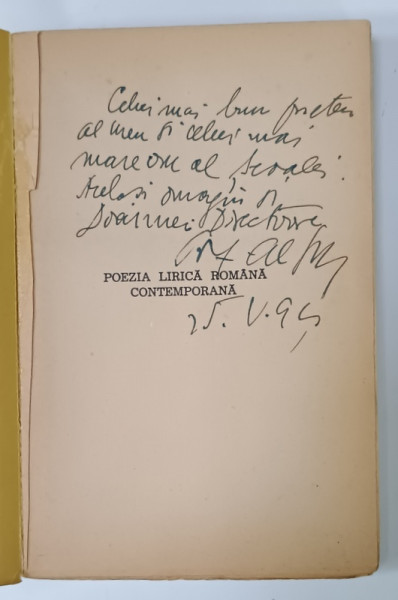 Celui mai bun prieten
al meu și celui mai
mare om al Școalei.
Același omagiu și
Doamnei Directoare
Prof
POEZIA LIRICĂ ROMÂNĂ
CONTEMPORANĂ
25. V. 945